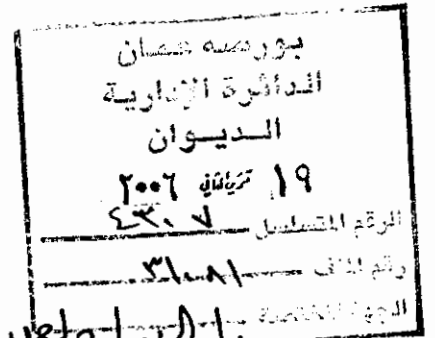 بورصة عمان
الدائرة الإدارية
الديوان
١٩ تشرين الثاني ٢٠٠٦
الرقم المتسلسل ٤٣٠٧
رقم الملف ٣١٠٨١
الجهة المختصة